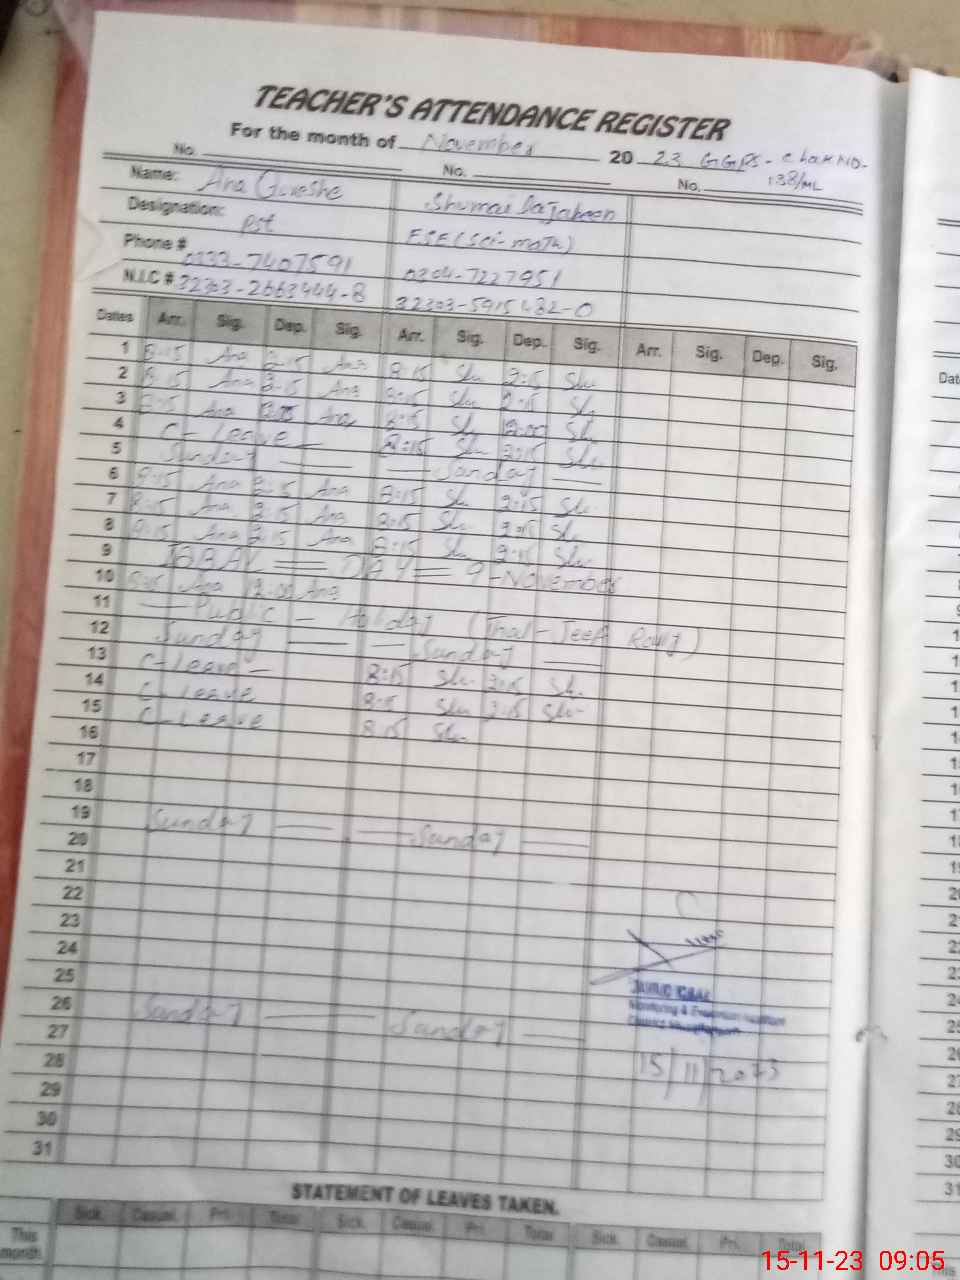 TEACHER'S ATTENDANCE REGISTER
For the month of November 2023 GGPS - Chak No-
138/ML
No. No. No.
Name: Ana Qureshe Shumai
Designation: Pst ESE (Sci-math)
Phone # 0333-7407591 0304-7227951
N.I.C # 32303-2663444-8 32303-5915432-0
Dates Arr. Sig. Dep. Sig. Arr. Sig. Dep. Sig. Arr. Sig. Dep. Sig.
1 8:15 Ana 2:15 Ana 8:15 Shu 2:15 Shu
2 8:15 Ana 2:15 Ana 8:15 Shu 2:15 Shu
3 8:15 Ana 12:00 Ana 8:15 Shu 12:00 Shu
4 C-Leave 8:15 Shu 2:15 Shu
5 Sunday Sunday
6 8:15 Ana 2:15 Ana 8:15 Shu 2:15 Shu
7 8:15 Ana 2:15 Ana 8:15 Shu 2:15 Shu
8 8:15 Ana 2:15 Ana 8:15 Shu 2:15 Shu
9 IQBAL DAY 9-November
10 8:15 Ana 12:00 Ana
11 Public - Holiday (Thal-Jeep Rally)
12 Sunday Sunday
13 C-Leave 8:15 Shu 2:15 Shu
14 C-Leave 8:15 Shu 2:15 Shu
15 C-Leave 8:15 Shu
16
17
18
19 Sunday Sunday
20
21
22
23
24
25
26 Sunday Sunday
27
28
29
30
31
Monitoring & Evaluation Assistant
District
15/11/2023
STATEMENT OF LEAVES TAKEN.
Sick. Casual. Pri. Total Sick. Casual. Pri. Total Sick. Casual. Pri. Total
This
month.
15-11-23 09:05